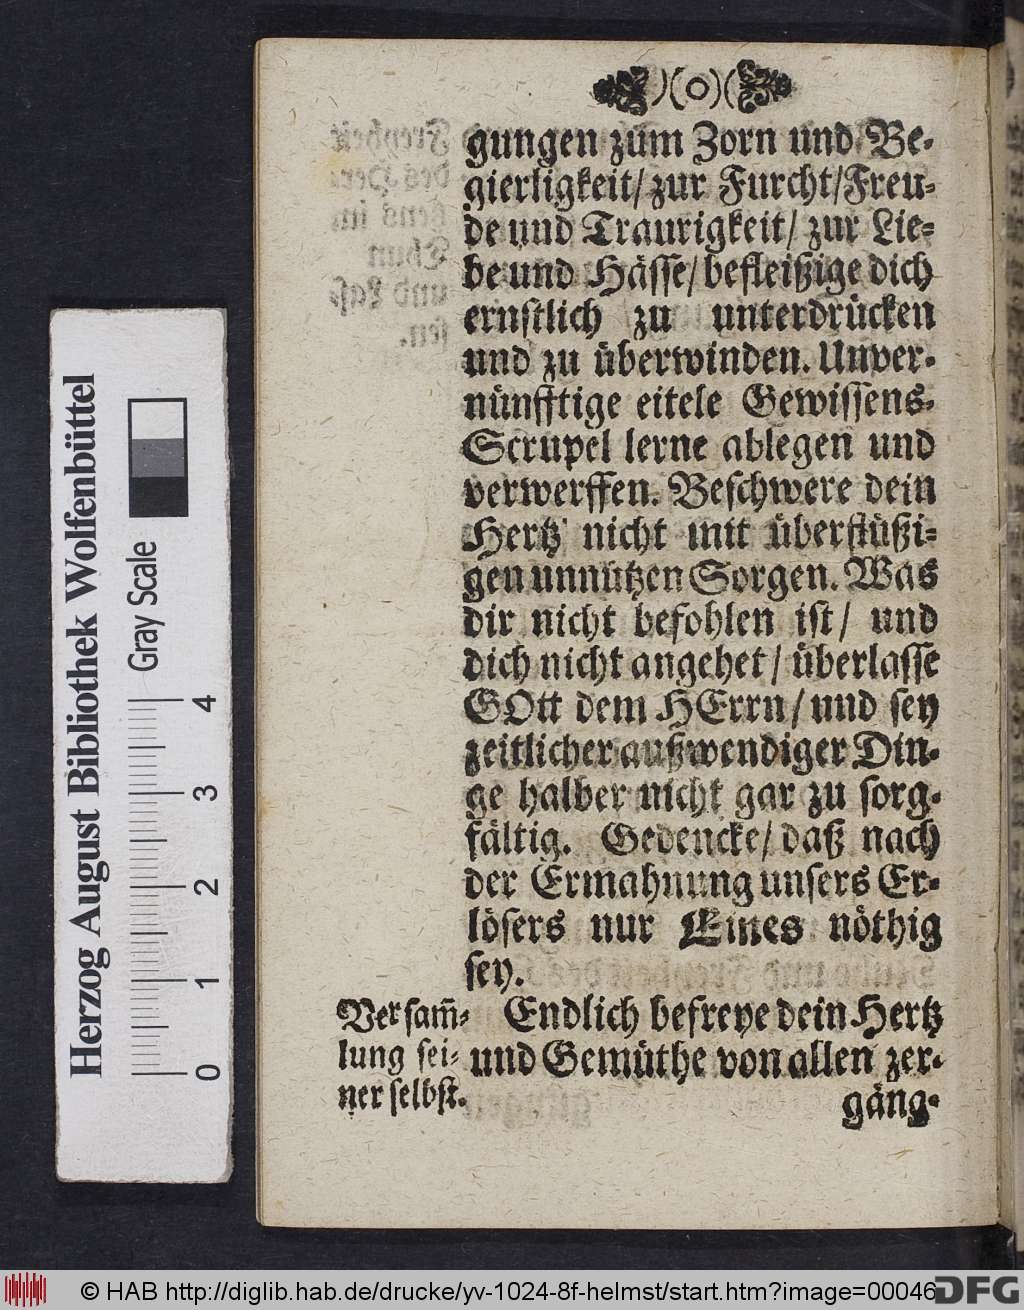 )(o)(
gungen zum Zorn und Be-
gierligkeit/ zur Furcht/ Freu-
de und Traurigkeit/ zur Lie-
be und Hässe/ befleißige dich
ernstlich zu unterdrücken
und zu überwinden. Unver-
nünfftige eitele Gewissens-
Scrupel lerne ablegen und
verwerffen. Beschwere dein
Hertz nicht mit überflüßi-
gen unnützen Sorgen. Was
dir nicht befohlen ist/ und
dich nicht angehet/ überlasse
GOtt dem HErrn/ und sey
zeitlicher außwendiger Din-
ge halber nicht gar zu sorg-
fältig. Gedencke/ daß nach
der Ermahnung unsers Er-
lösers nur Eines nöthig
sey.
Versam̃-
lung sei-
ner selbst.
Endlich befreye dein Hertz
und Gemüthe von allen zer-
gäng-
Herzog August Bibliothek Wolfenbüttel
Gray Scale
0 1 2 3 4
© HAB http://diglib.hab.de/drucke/yv-1024-8f-helmst/start.htm?image=00046
DFG